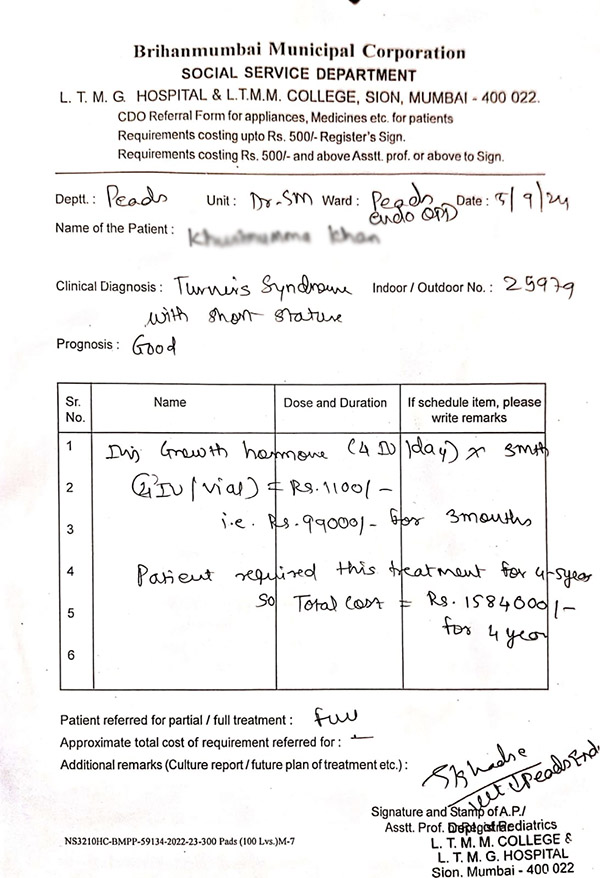 Brihanmumbai Municipal Corporation
SOCIAL SERVICE DEPARTMENT
L. T. M. G. HOSPITAL & L.T.M.M. COLLEGE, SION, MUMBAI - 400 022.
CDO Referral Form for appliances, Medicines etc. for patients
Requirements costing upto Rs. 500/- Register's Sign.
Requirements costing Rs. 500/- and above Asstt. prof. or above to Sign.
Deptt. : Peads Unit : Dr-SM Ward : Peads endo OPD Date : 5/9/24
Name of the Patient :
Clinical Diagnosis : Turner's Syndrome Indoor / Outdoor No. : 25979
with short stature
Prognosis : Good
Sr. No. Name Dose and Duration If schedule item, please write remarks
1 Inj Growth hormone (4 IU/day) x 3mth
2 (4 IU/vial) = Rs. 1100/-
3 i.e. Rs. 99000/- for 3 months
4 Patient required this treatment for 4-5 year
5 So Total Cost = Rs. 1584000/-
for 4 year
6
Patient referred for partial / full treatment : full
Approximate total cost of requirement referred for : -
Additional remarks (Culture report / future plan of treatment etc.) :
Signature and Stamp of A.P./
Asstt. Prof. Dept. of Pediatrics
L. T. M. M. COLLEGE &
L. T. M. G. HOSPITAL
Sion, Mumbai - 400 022
NS3210HC-BMPP-59134-2022-23-300 Pads (100 Lvs.)M-7